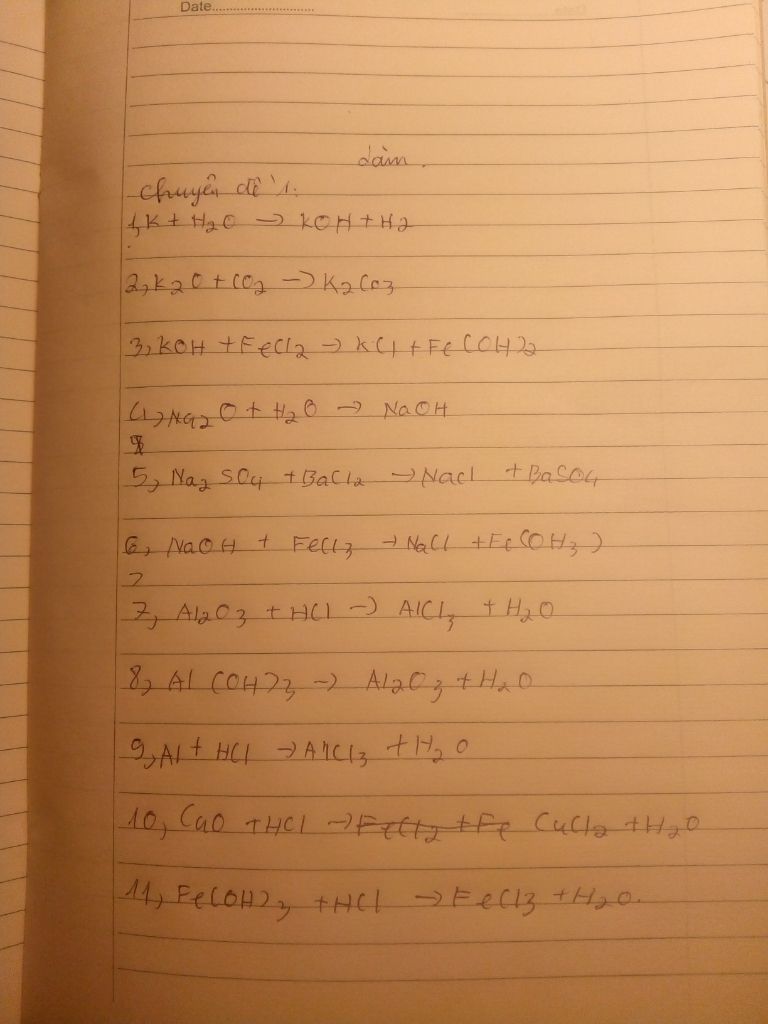 Date
Làm.
Chuyên đề 1:
1, K + H2O → KOH + H2
2, K2O + CO2 → K2CO3
3, KOH + FeCl2 → KCl + Fe(OH)2
4, Na2O + H2O → NaOH
5, Na2SO4 + BaCl2 → NaCl + BaSO4
6, NaOH + FeCl3 → NaCl + Fe(OH3)
7, Al2O3 + HCl → AlCl3 + H2O
8, Al(OH)3 → Al2O3 + H2O
9, Al + HCl → AlCl3 + H2O
10, CuO + HCl → FeCl2 + Fe CuCl2 + H2O
11, Fe(OH)3 + HCl → FeCl3 + H2O.